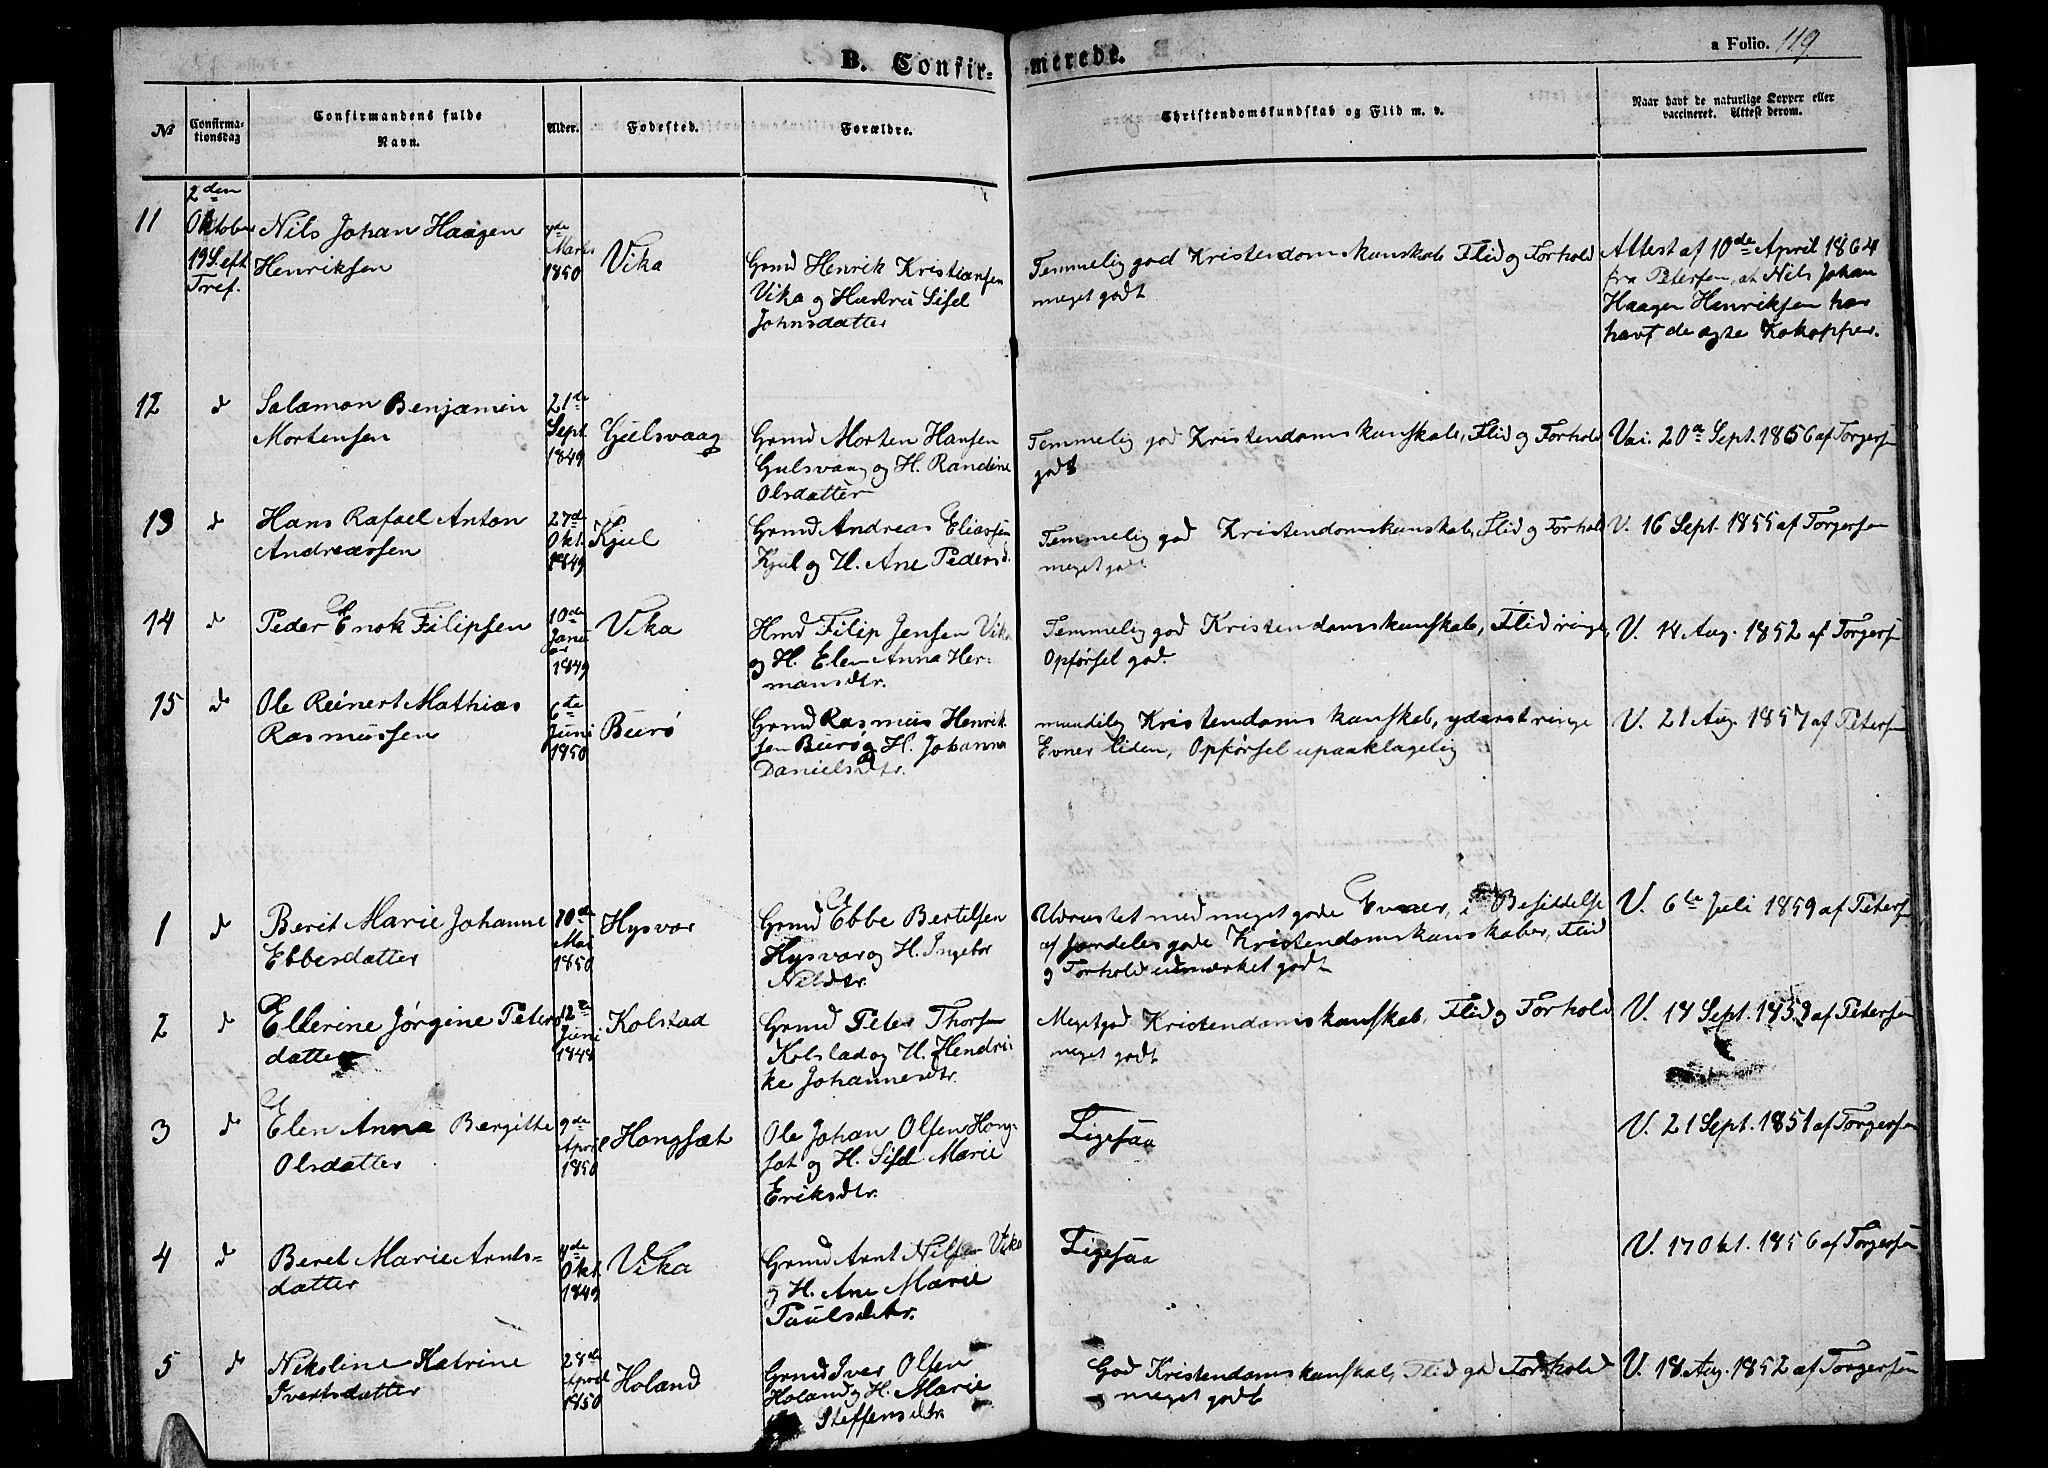 B. Confir-
merede.
a Folio. 119
No
Confirma-
tionsdag
Confirmandens fulde
Navn.
Alder.
Fødested.
Forældre.
Christendomskundskab og Flid m. v.
Naar havt de naturlige Kopper eller
vaccineret. Attest derom.
11
2den
Oktober
19 S. eft
Tref.
Nils Johan Haagen
Henriksen
4de
Marts
1850
Vika
Grmd Henrik Kristiansen
Vika og Hustru Sisel
Johnsdatter
Temmelig god Kristendomskunskab Flid og Forhold
meget godt
Attest af 10de April 1864
fra Petersen, at Nils Johan
Haagen Henriksen har
havt de ægte Kokopper.
12
d
Salamon Benjamin
Mortensen
21de
Sept.
1849
Gulsvaag
Grmd Morten Hansen
Gulsvaag og H. Randine
Olsdatter
Temmelig god Kristendomskunskab, Flid og Forhold
godt
Vai. 20a Sept. 1856 af Torgersen
13
d
Hans Rafael Anton
Andreassen
27de
Okt.
1849
Kjul
Grmd Andreas Eliassen
Kjul og H. Ane Pedersd.
Temmelig god Kristendomskunskab, Flid og Forhold
meget godt
V. 16 Sept. 1855 af Torgersen
14
d
Peder Enok Filipsen
10de
Janu
ar
1849
Vika
Hmd Filip Jensen Vika
og H. Elen Anna Her-
mansdtr.
Temmelig god Kristendomskunskab, Flid ringe,
Opførsel god.
V. 14 Aug. 1852 af Torgersen
15
d
Ole Reinert Mathias
Rasmussen
6te
Juni
1850
Burø
Grmd Rasmus Henrik
sen Burø og H. Johanna
Danielsdtr.
maadelig Kristendomskunskab, yderst ringe
Evner liden, Opførsel upaaklagelig
V. 21 Aug. 1857 af Petersen
1
d
Berit Marie Johanne
Ebbesdatter
10de
Mai
1850
Hysvær
Grmd Ebbe Bertelsen
Hysvær og H. Ingebor
Nilsdtr.
Udrustet med meget gode Evner, i Besiddelse
af særdeles gode Kristendomskunskaber, Flid
og Forhold udmærket godt
V. 6te Juli 1859 af Petersen
2
d
Ellerine Jørgine Peters
datter
12te
Juni
1848
Kolstad
Grmd Peter Thorsen
Kolstad og H. Hendri
ke Johannesdtr.
Meget god Kristendomskunskab, Flid og Forhold
meget godt
V. 14 Sept. 1859 af Petersen
3
d
Elen Anna Bergitte
Olsdatter
9de
April
1850
Hongsæt
Ole Johan Olsen Hong-
sæt og H. Sisel Marie
Eriksdtr.
Ligesaa
V. 21 Sept. 1851 af Torgersen
4
d
Beret Marie Arnts-
datter
4de
Okt.
1849
Vika
Grmd Arnt Nilsen Vika
og H. Ane Marie
Paulsdtr.
Ligesaa
V. 17 Okt. 1856 af Torgersen
5
d
Nikoline Katrine
Ivertsdatter
28de
April
1850
Holand
Grmd Iver Olsen
Holand og H. Marie
Steffensdtr.
God Kristendomskunskab, Flid og Forhold
meget godt
V. 18 Aug. 1852 af Torgersen